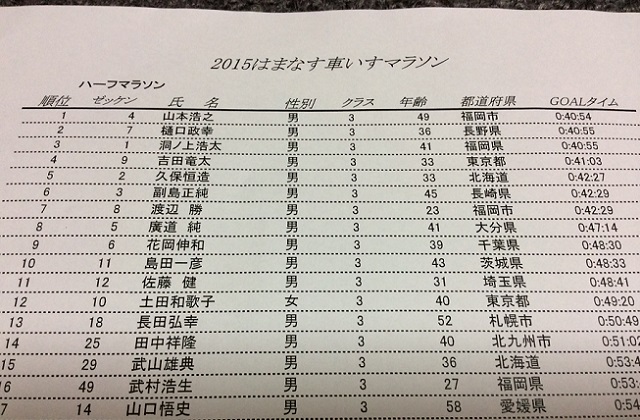 2015はまなす車いすマラソン
ハーフマラソン
順位 ゼッケン 氏 名 性別 クラス 年齢 都道府県 GOALタイム
1 4 山本浩之 男 3 49 福岡市 0:40:54
2 7 樋口政幸 男 3 36 長野県 0:40:55
3 1 洞ノ上浩太 男 3 41 福岡県 0:40:55
4 9 吉田竜太 男 3 33 東京都 0:41:03
5 2 久保恒造 男 3 33 北海道 0:42:27
6 3 副島正純 男 3 45 長崎県 0:42:29
7 8 渡辺 勝 男 3 23 福岡市 0:42:29
8 5 廣道 純 男 3 41 大分県 0:47:14
9 6 花岡伸和 男 3 39 千葉県 0:48:30
10 11 島田一彦 男 3 43 茨城県 0:48:33
11 12 佐藤 健 男 3 31 埼玉県 0:48:41
12 10 土田和歌子 女 3 40 東京都 0:49:20
13 18 長田弘幸 男 3 52 札幌市 0:50:49
14 25 田中祥隆 男 3 40 北九州市 0:51:02
15 29 武山雄典 男 3 36 北海道 0:53:4
16 49 武村浩生 男 3 27 福岡県 0:53:
7 14 山口悟史 男 3 58 愛媛県 0:54